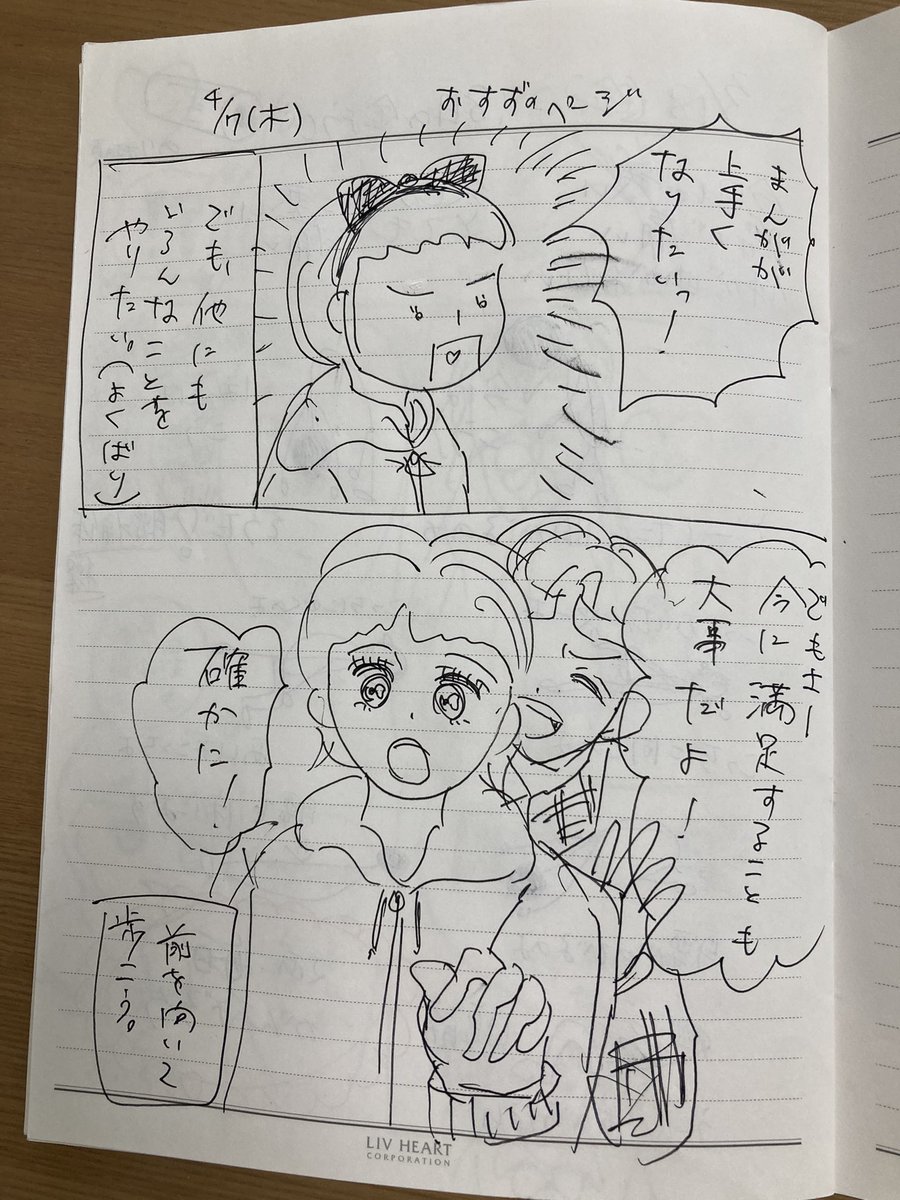 4/7(木)
おすずのページ
まんがが
上手く
なりたいっ!
でも、他にも
いろんなことを
やりたい。(よくばり)
でもさー
今に満足することも
大事だよ!
確かに!
前を向いて
歩こう。
LIV HEART
CORPORATION